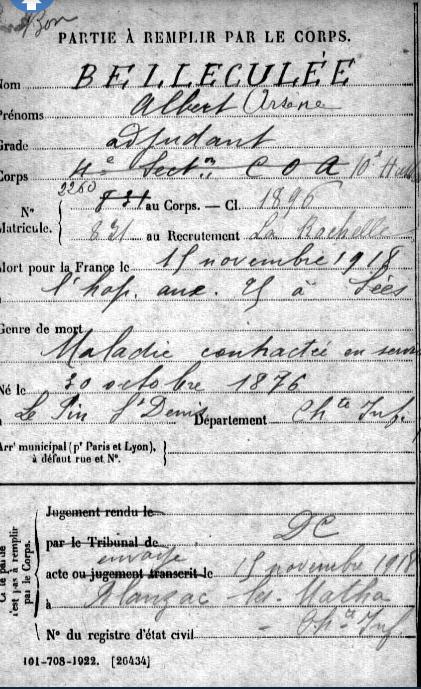 Bon
PARTIE À REMPLIR PAR LE CORPS.
Nom BELLECULÉE
Prénoms Albert Arsène
Grade adjudant
Corps 4e Secton C O A 10e
2260
N° Matricule. 831 au Corps. — Cl. 1896
831 au Recrutement La Rochelle
Mort pour la France le 15 novembre 1918
à l'hop. aux. 25 à Sées
Genre de mort
Maladie contractée en serv
Né le 30 octobre 1876
à Le Pin St Denis Département Chte Inf.
Arrt municipal (pr Paris et Lyon), à défaut rue et N°.
Cette partie n'est pas à remplir par le Corps.
Jugement rendu le
par le Tribunal de DC
envoyé
acte ou jugement transcrit le 15 novembre 1918
à les-Matha
Chte Inf
N° du registre d'état civil
101-708-1922. [26434]